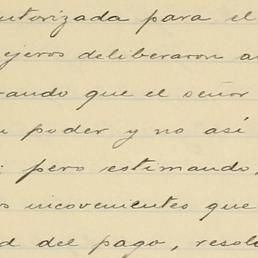 utorizada para el
ejeros deliberaron a
rando que el señor
u poder y no así
: pero estimando,
os incovenientes que
d del pago, resol